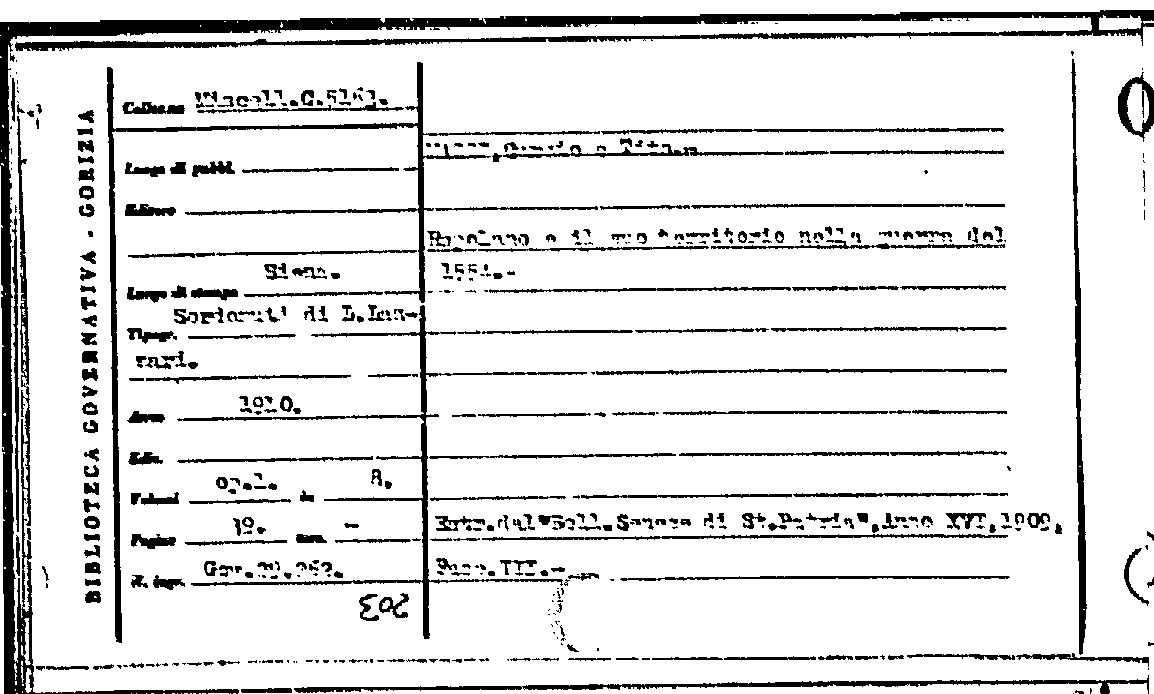 BIBLIOTECA GOVERNATIVA - GORIZIA
Collocaz. Miscell.C.5163.
Luogo di pubbl.
Editore
Rapolano e il suo territorio nella guerra del
1554.-
Luogo di stampa Siena.
Tipogr. Sordomuti di L.Laz-
zari.
Anno 1910.
Ediz.
Volumi op.1. in 8.
Pagine 19. tav. -
N. ingr. Gov.
Estr.dal"Boll.Senese di St.Patria",Anno XVI,1909,
Fasc.III.-
203